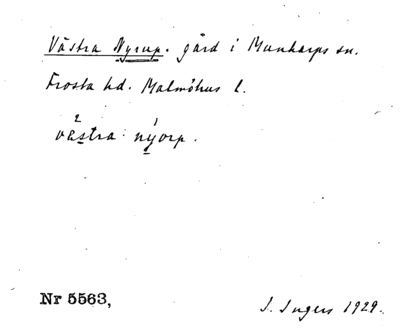 Västra Nyrup. gård i Munkarps sn.
Frosta hd. Malmöhus l.
västra nyorp.
Nr 5563,
I. Ingers 1929.